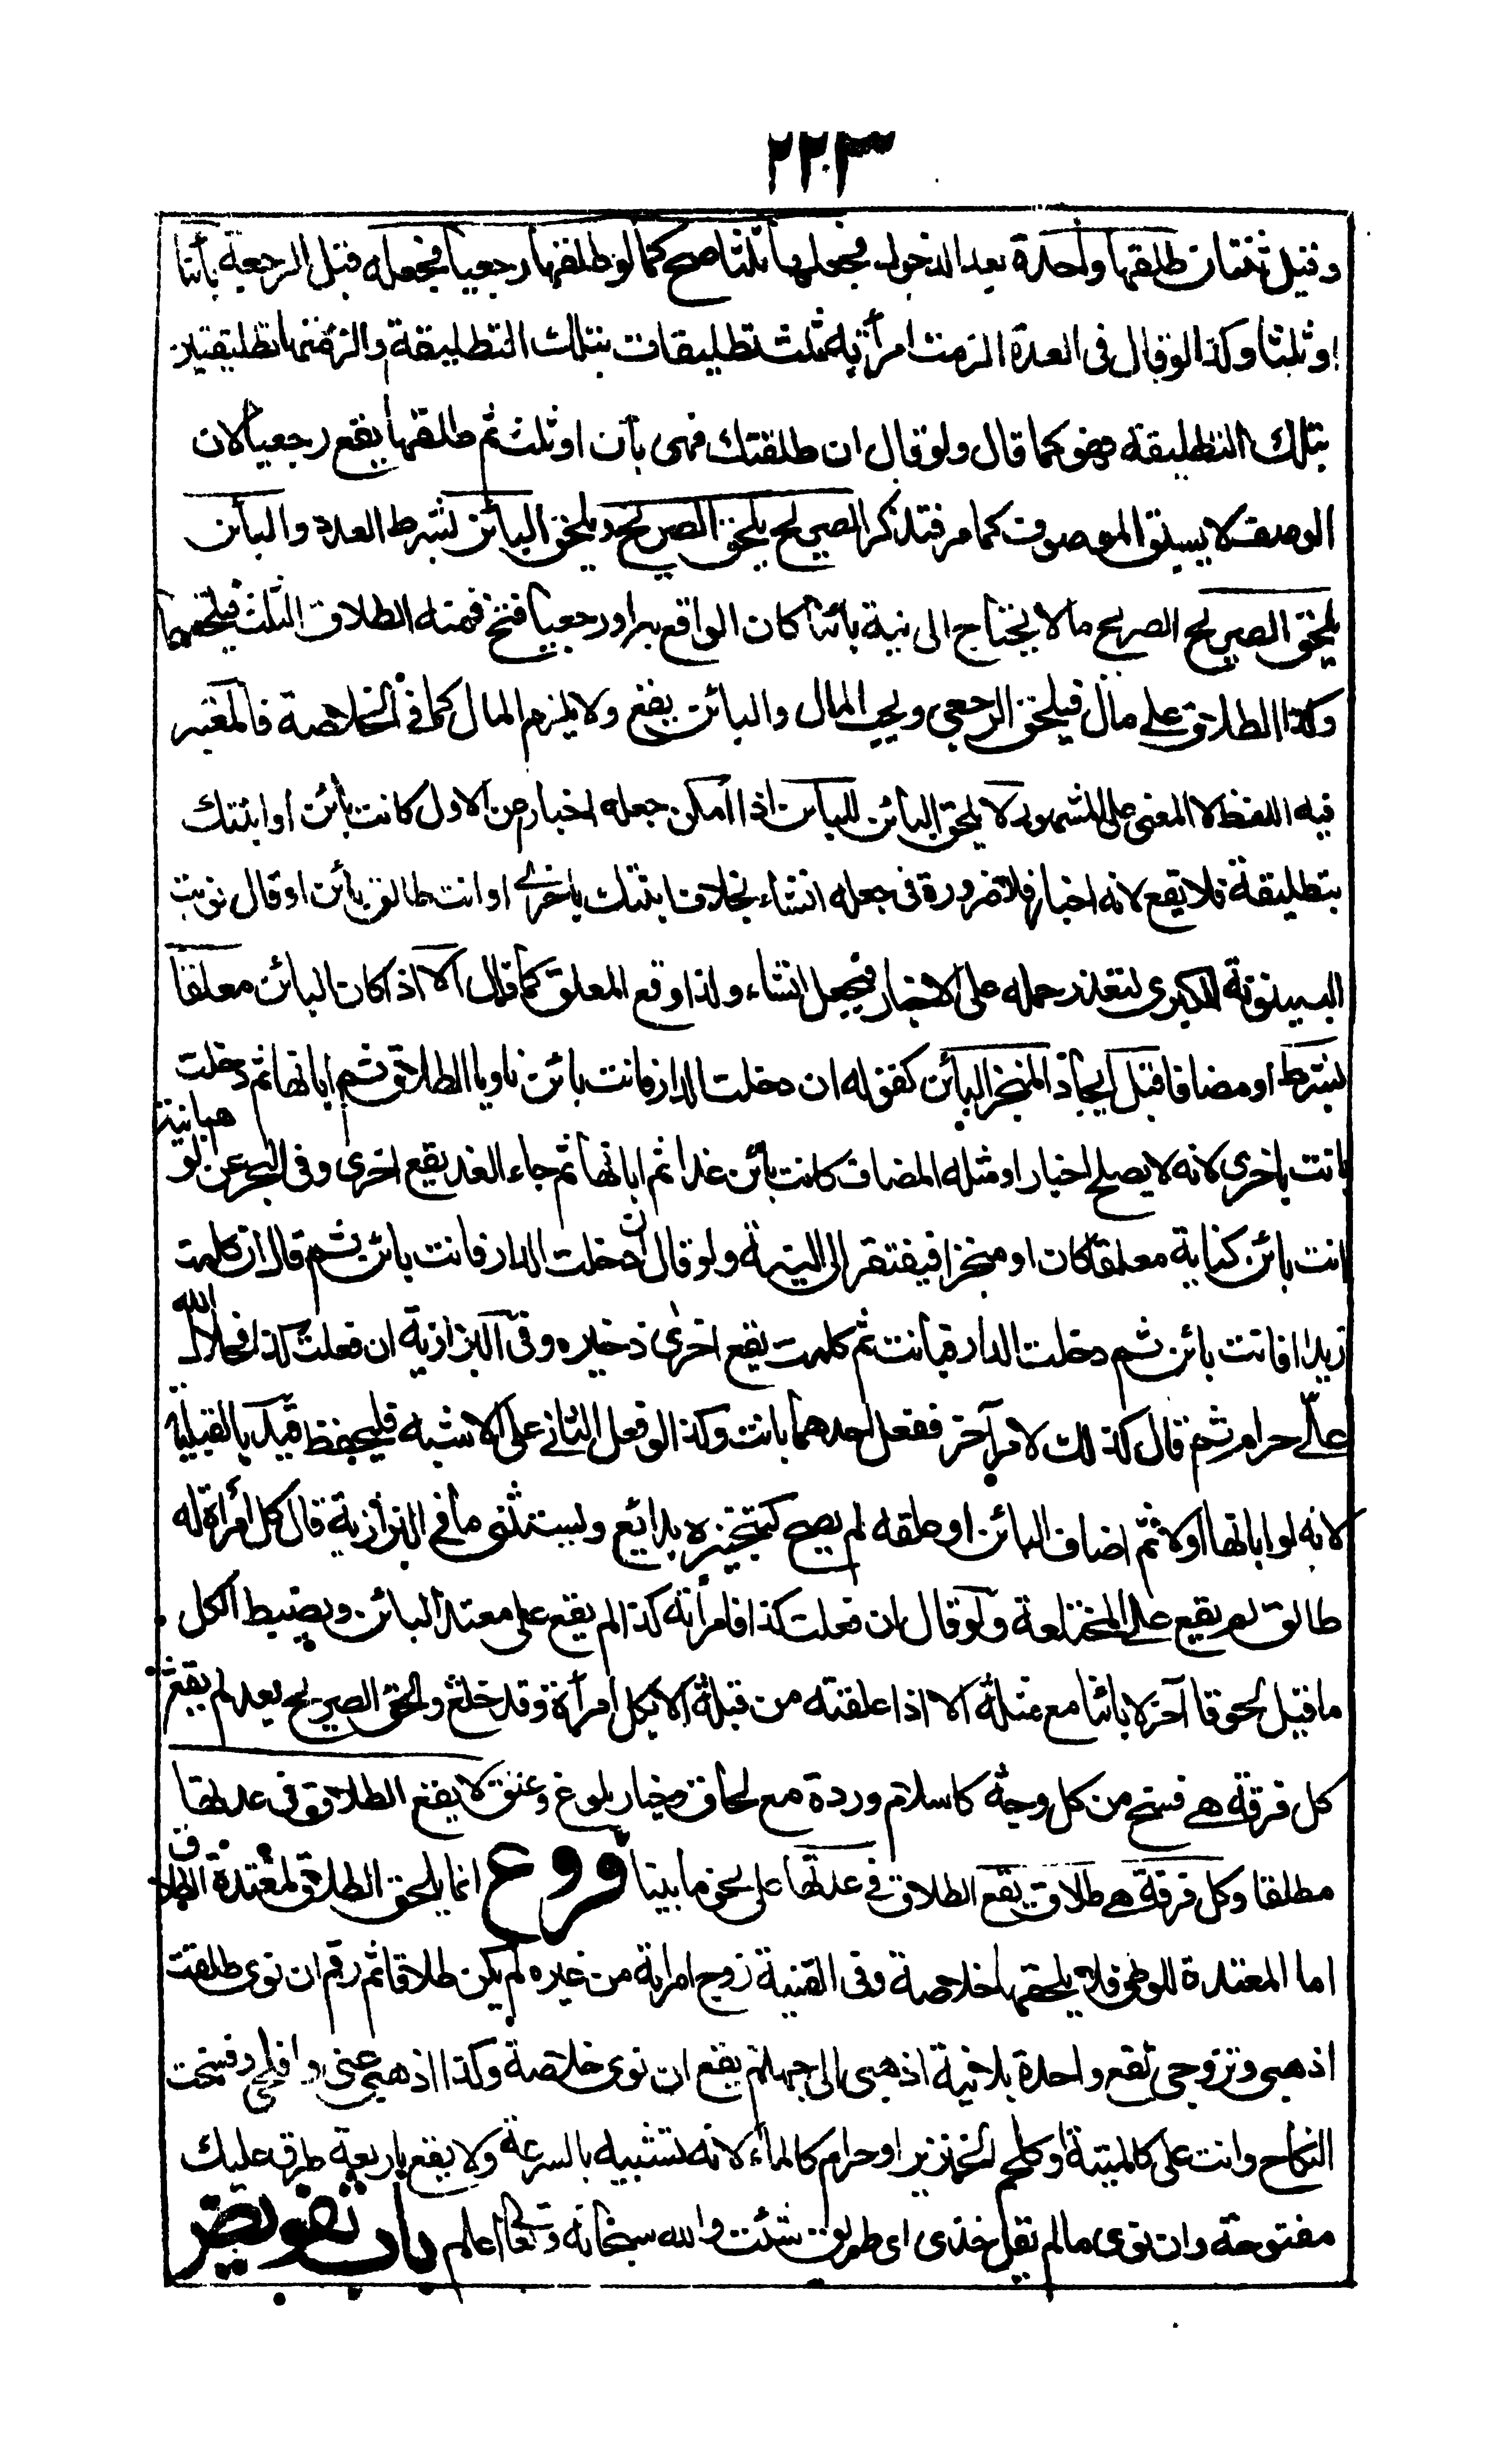 ٢٢٣
وقيل ثنتان طلقها واحدة بعد الدخول فجعلها ثلثا صح كما لو طلقها رجعيا فجعله قبل الرجعة بائنا
او ثلثا وكذا لو قال فى العدة الزمت امرأتى ثلث تطليقات بتلك التطليقة والزمتها تطليقتين
بتلك التطليقة فهو كما قال ولو قال ان طلقتك فهى بائن او ثلث ثم طلقها يقع رجعيا لان
الوصف لا يسبق الموصوف كما مر فتذكر الصريح يلحق الصريح ويلحق البائن بشرط العدة والبائن
يلحق الصريح الصريح ما لا يحتاج الى نية بائنا كان الواقع به او رجعيا فتح فمنه الطلاق الثلث فيلحقهما
وكذا الطلاق على مال فيلحق الرجعي ويجب المال والبائن يقع ولا يلزم المال كما في الخلاصة فالمعتبر
فيه اللفظ لا المعنى على المشهور لا يلحق البائن البائن اذا امكن جعله اخبارا عن الاول كانت بائن او ابنتك
بتطليقة فلا يقع لانه اخبار فلا ضرورة في جعله انشاء بخلاف ابنتك باخرى او انت طالق بائن او قال نويت
البينونة الكبرى لتعذر حمله على الاخبار فيجعل انشاء ولذا وقع المعلق كما قال الا اذا كان البائن معلقا
بشرط او مضافا قبل ايجاد المنجز البائن كقوله ان دخلت الدار فانت بائن ناويا الطلاق ثم ابانها ثم دخلت
بانت باخرى لانه لا يصلح اخبارا ومثله المضاف كانت بائن غدا ثم ابانها ثم جاء الغد يقع اخرى وفي البحر عن الوهبانية
انت بائن كناية معلقا كان او منجزا فيفتقر الى النية ولو قال ان دخلت الدار فانت بائن ثم قال ان كلمت
زيدا فانت بائن ثم دخلت الدار فبانت ثم كلمت يقع اخرى ذخيره وفى البزازية ان فعلت كذا فحلال الله
علي حرام ثم قال كذلك لامر آخر ففعل احدهما بانت وكذا لو فعل الثانى على الاشبه فليحفظ قيد بالقبلية
لانه لو ابانها اولا ثم اضاف البائن او علقه لم يصح كتنجيزه بدائع ويستثنى ما في البزازية قال كل امرأة له
طالق لم يقع على المختلعة ولو قال ان فعلت كذا فامرأته كذا لم يقع على معتدة البائن ويضبط الكل
ما قيل لحوقا آخر لا بائنا مع مثله الا اذا علقته من قبله الا بكل امرأة وقد خلع والحق الصريح بعد لم يقع
كل فرقة هي فسخ من كل وجه كاسلام وردة مع لحاق وخيار بلوغ وعتق لا يقع الطلاق في عدتها
مطلقا وكل فرقة هي طلاق يقع الطلاق في عدتها على نحو ما بينا فروع انما يلحق الطلاق لمعتدة الطلاق
اما المعتدة للوطى فلا يلحقها خلاصة وفى القنية زوج امرأته من غيره لم يكن طلاقا ثم رقم ان نوى طلقت
اذهبى وتزوجى تقع واحدة بلا نية اذهبى الى جهنم يقع ان نوى خلاصة وكذا اذهبي عنى وافلحى وفسخت
النكاح وانت على كالميتة او كلحم الخنزير او حرام كالماء لانه تشبيه بالسرعة ولا يقع باربعة طرق عليك
مفتوحة وان نوى ما لم يقل خذى اى طريق شئت والله سبحانه وتعالى اعلم باب تفويض